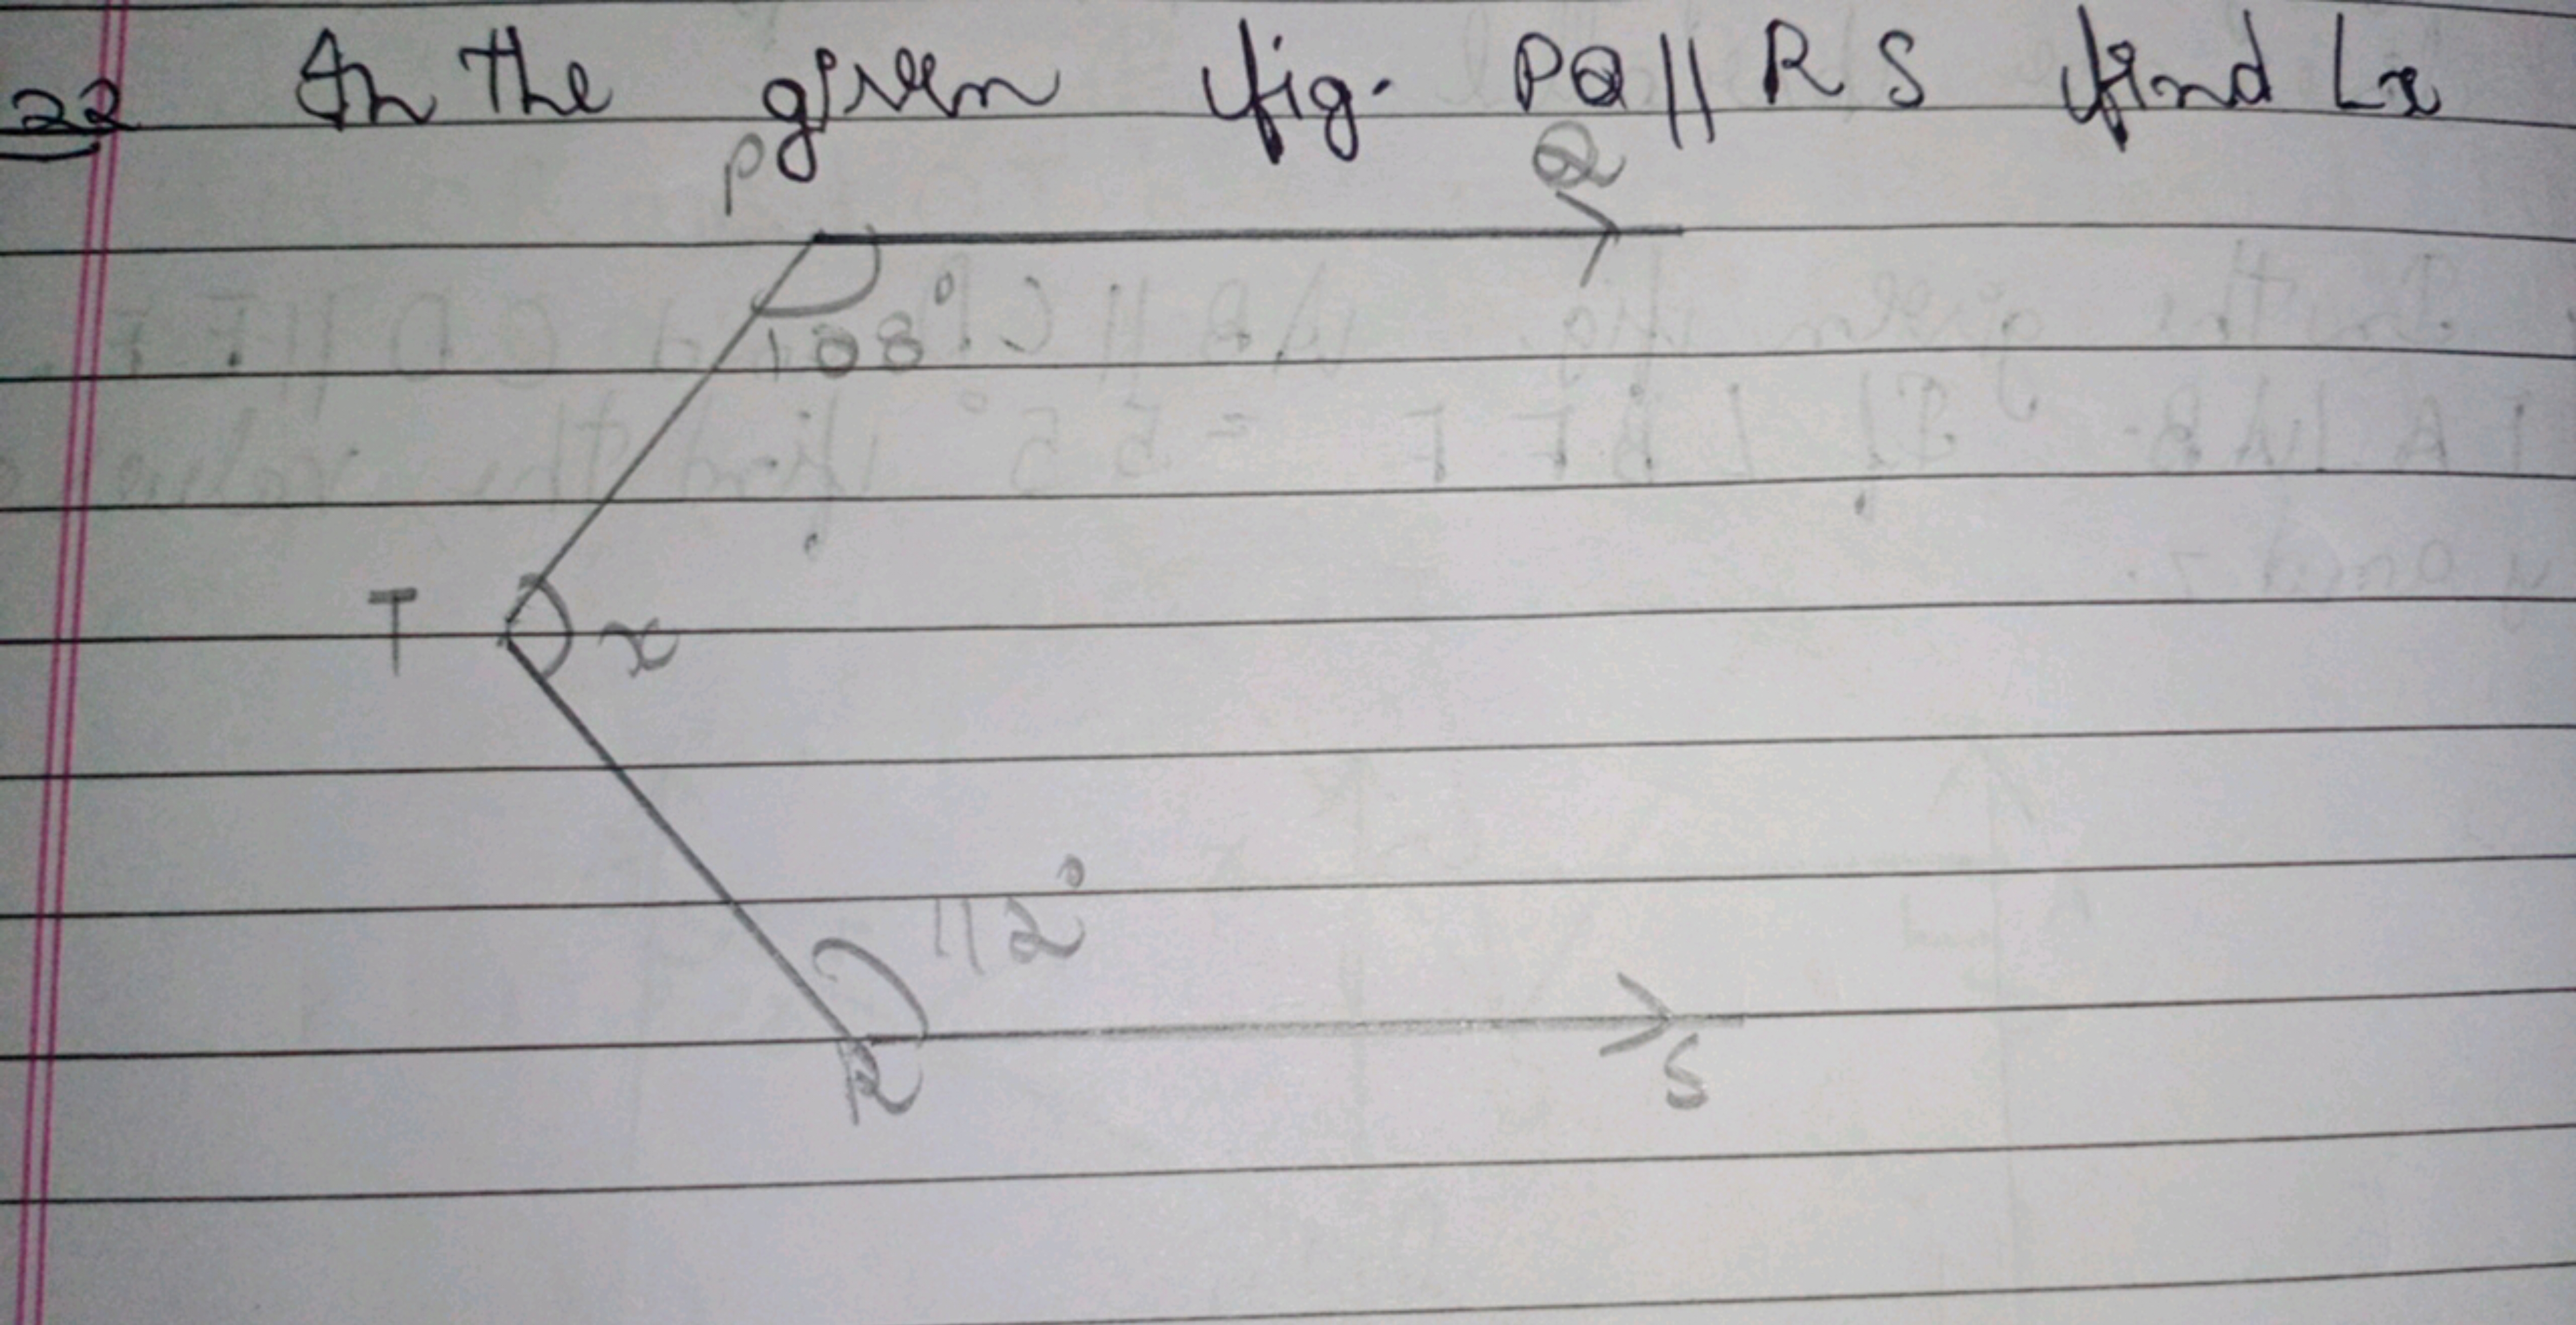 22 In the given fig. PQ || RS find ∠x
P Q
108°
T x
112°
R S